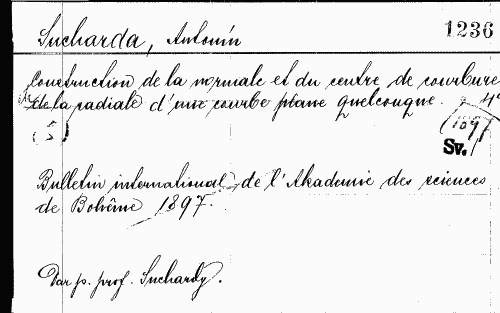 Sucharda, Antonín 1236
Construction de la normale et du centre de courbure
de la radiale d'une courbe plane quelconque. 4°
(1897)
Sv.
Bulletin international de l'Akademie des sciences
de Bohême 1897.
Dar p. prof. Suchardy.